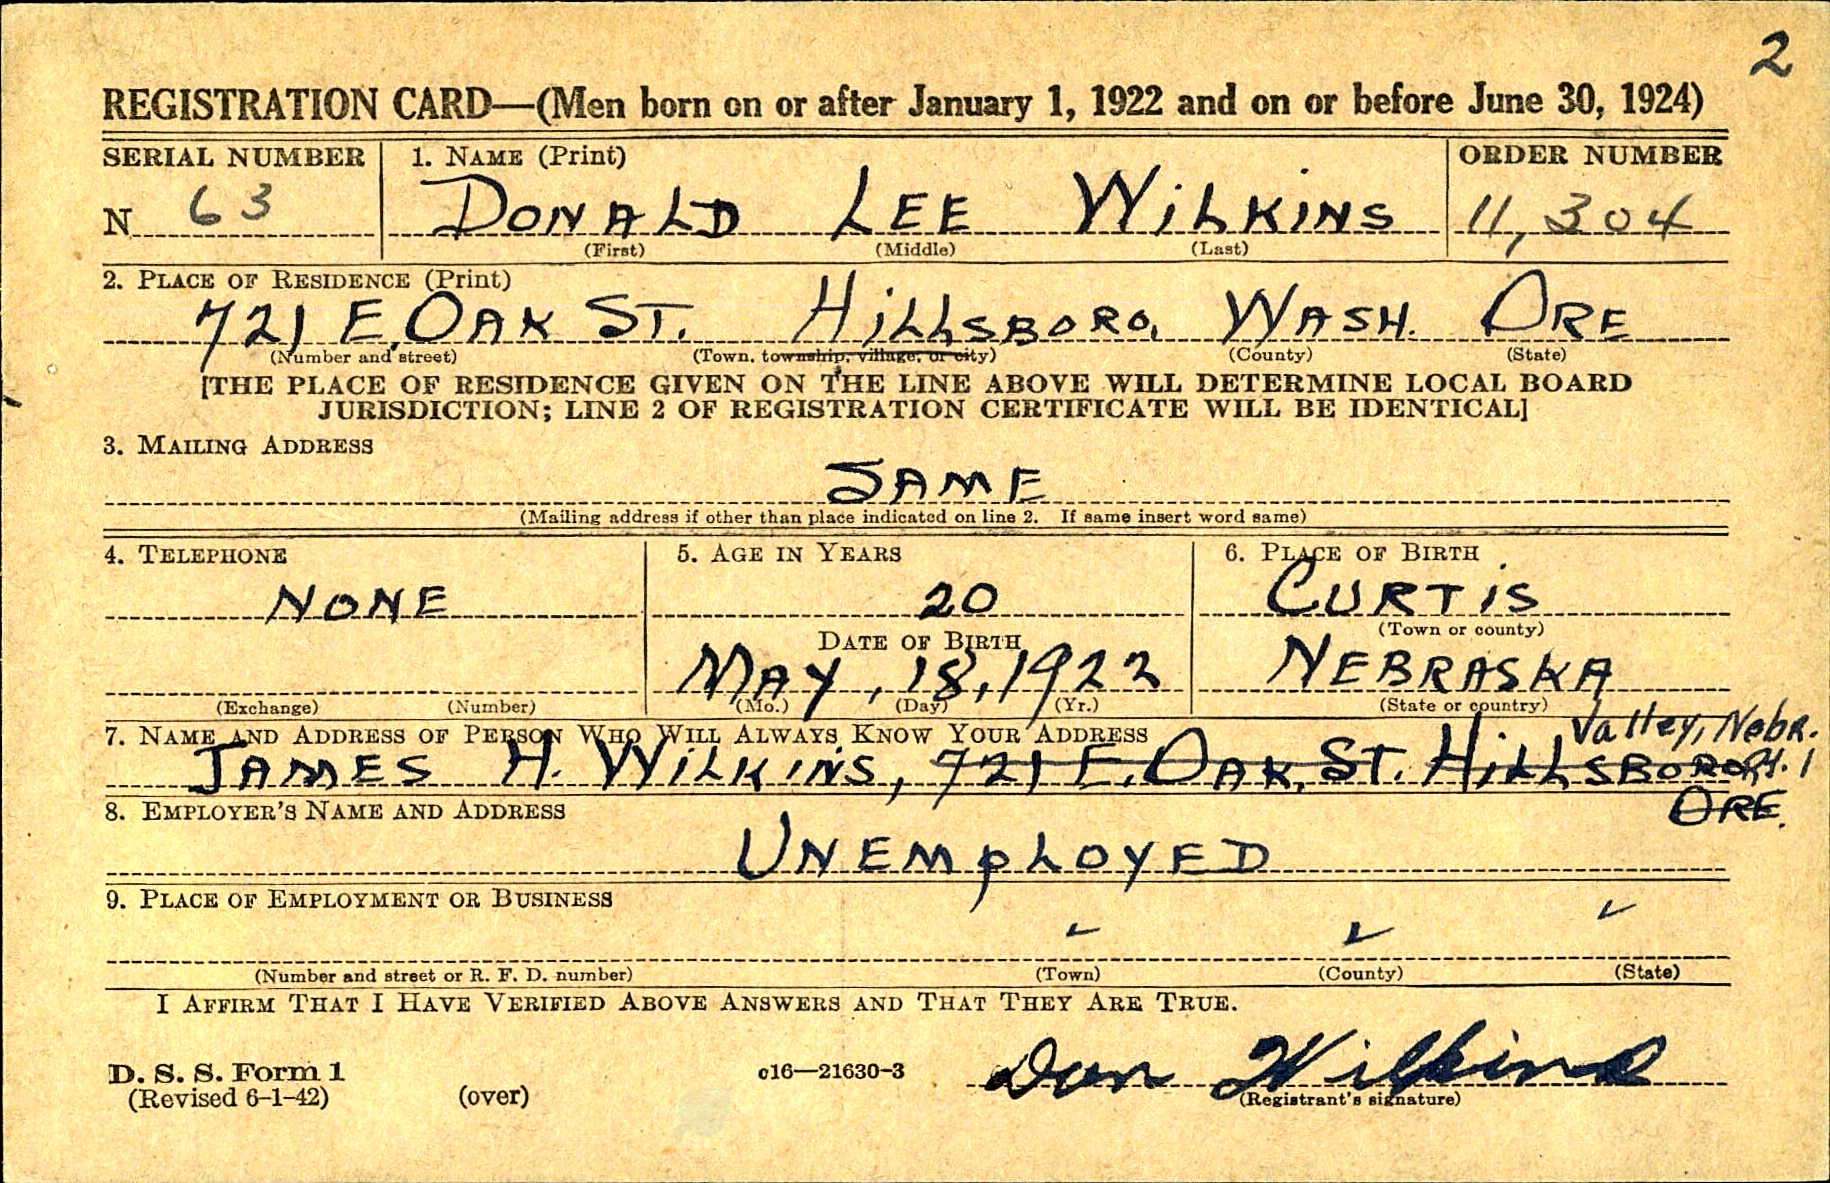 2
REGISTRATION CARD—(Men born on or after January 1, 1922 and on or before June 30, 1924)
SERIAL NUMBER 1. NAME (Print) ORDER NUMBER
N 63 DONALD LEE WILKINS 11,304
(First) (Middle) (Last)
2. PLACE OF RESIDENCE (Print)
721 E. OAK ST. HILLSBORO, WASH. ORE
(Number and street) (Town, township, village, or city) (County) (State)
[THE PLACE OF RESIDENCE GIVEN ON THE LINE ABOVE WILL DETERMINE LOCAL BOARD
JURISDICTION; LINE 2 OF REGISTRATION CERTIFICATE WILL BE IDENTICAL]
3. MAILING ADDRESS
SAME
(Mailing address if other than place indicated on line 2. If same insert word same)
4. TELEPHONE 5. AGE IN YEARS 6. PLACE OF BIRTH
NONE 20 CURTIS
DATE OF BIRTH (Town or county)
MAY, 18, 1922 NEBRASKA
(Exchange) (Number) (Mo.) (Day) (Yr.) (State or country)
7. NAME AND ADDRESS OF PERSON WHO WILL ALWAYS KNOW YOUR ADDRESS Valley, Nebr.
JAMES H. WILKINS, 721 E. OAK, ST. HILLSBORO Rt. 1
8. EMPLOYER'S NAME AND ADDRESS ORE.
UNEMPLOYED
9. PLACE OF EMPLOYMENT OR BUSINESS
(Number and street or R. F. D. number) (Town) (County) (State)
I AFFIRM THAT I HAVE VERIFIED ABOVE ANSWERS AND THAT THEY ARE TRUE.
D. S. S. Form 1 c16—21630-3 Don Wilkins
(Revised 6-1-42) (over) (Registrant's signature)